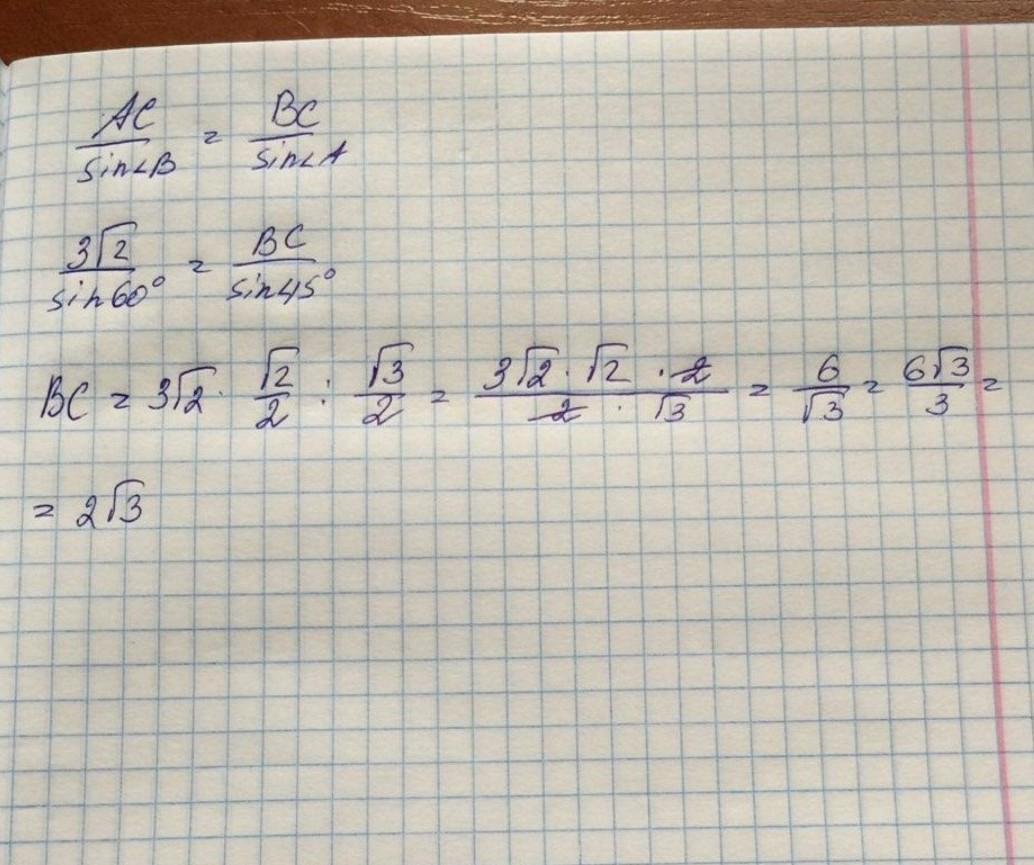 AC/sin∠B = BC/sin∠A
3√2/sin60° = BC/sin45°
BC = 3√2 · √2/2 : √3/2 = 3√2 · √2 · 2/2 · √3 = 6/√3 = 6√3/3 =
= 2√3